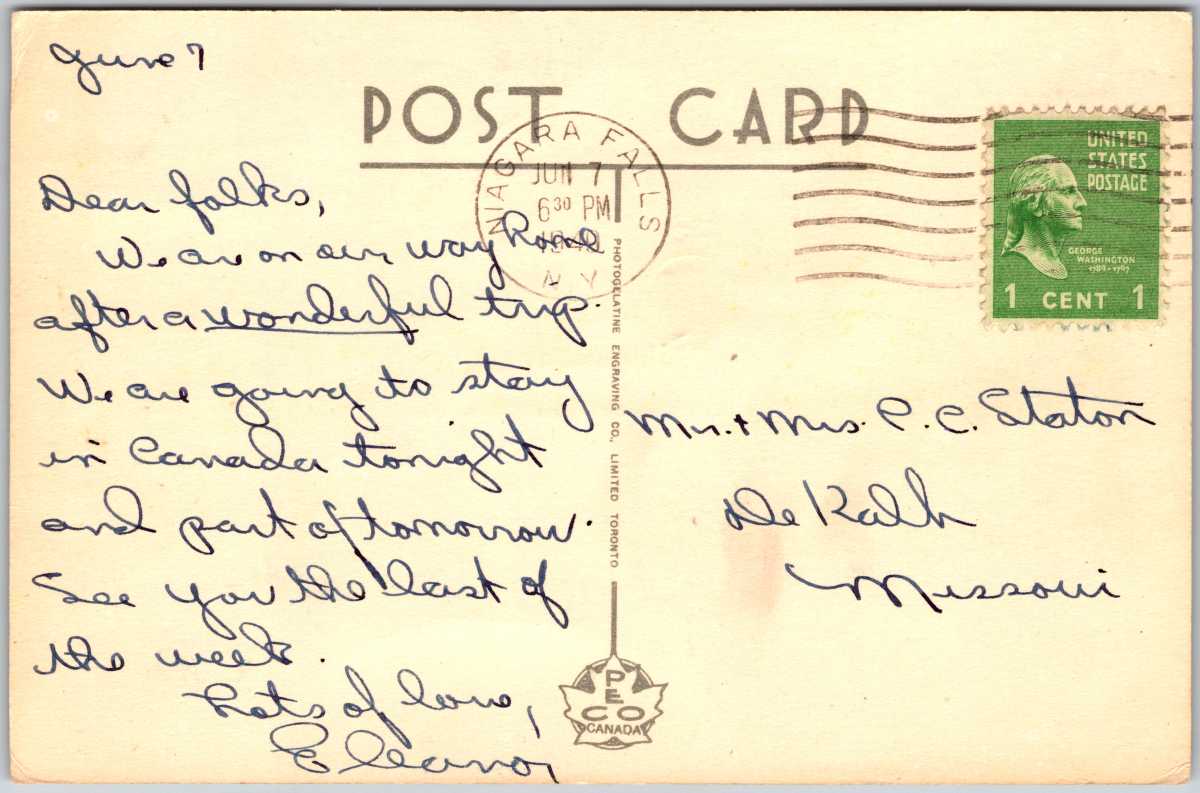 June 7
POST CARD
NIAGARA FALLS
JUN 7
630 PM
N.Y.
UNITED
STATES
POSTAGE
GEORGE
WASHINGTON
1789-1797
1 CENT 1
Dear folks,
We are on our way home
after a wonderful trip.
We are going to stay
in Canada tonight
and part of tomorrow.
See you the last of
the week.
Lots of love,
Eleanor
PHOTOGELATINE ENGRAVING CO., LIMITED TORONTO
Mr. + Mrs. P. C. Staton
De Kalb
Missouri
PECO
CANADA